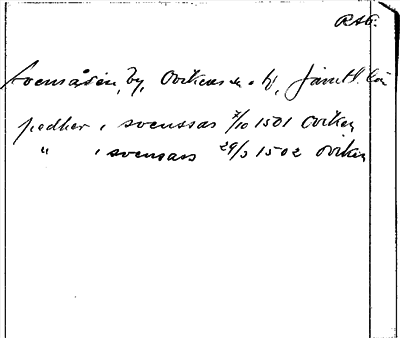 RAÖ.
Svensåsen, by, Ovikens sn. o. tg, Jämtl. län
pedher i svenssas 7/10 1501 Oviken
" i svensass 29/3 1502 Oviken